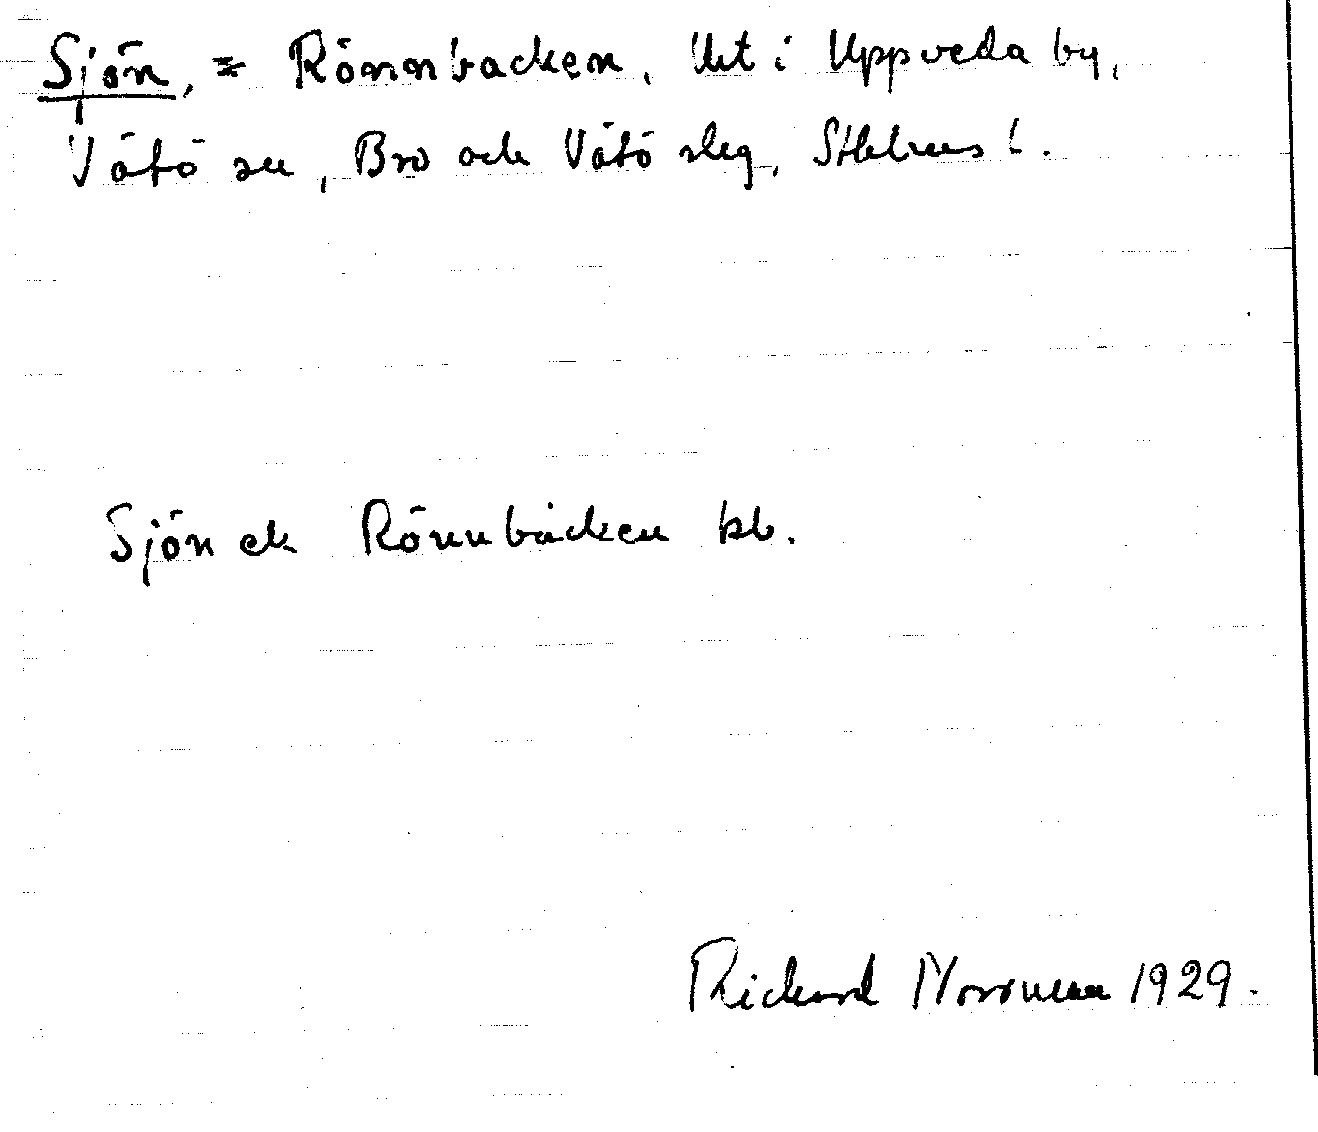 Sjön, = Rönnbacken, lht i Uppveda by,
Vätö sn, Bro och Vätö slg, Sthlms l.
Sjön el. Rönnbacken kb.
Rickard Norrman 1929.